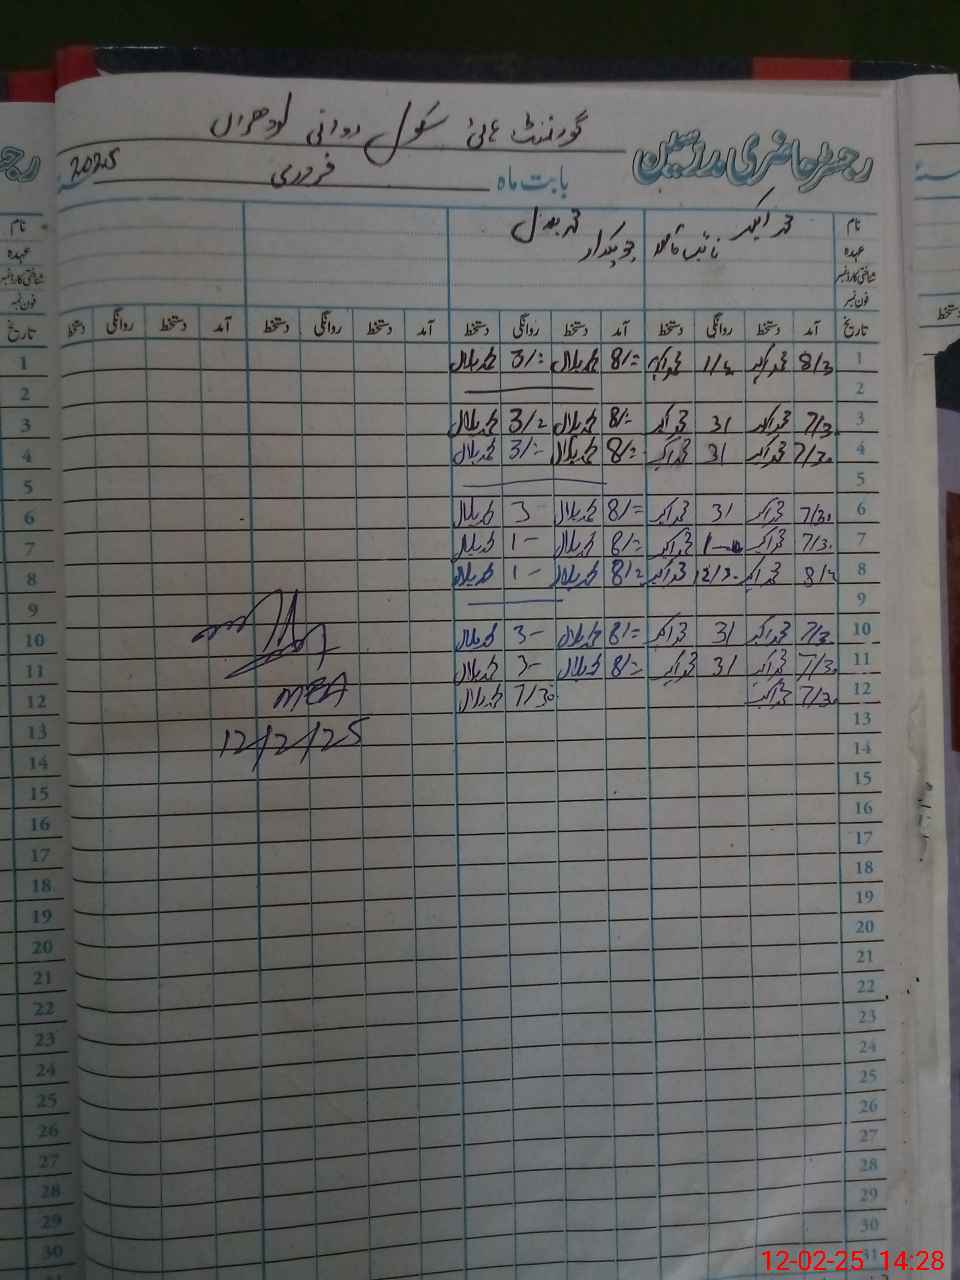 گورنمنٹ ہائی سکول لودھراں
رجسٹر حاضری مدرسین
بابت ماہ فروری 2025
نام محمد اکبر
عہدہ نائب قاصد چوکیدار
شناختی کارڈ نمبر
فون نمبر
تاریخ آمد دستخط روانگی دستخط آمد دستخط روانگی دستخط آمد دستخط روانگی دستخط آمد دستخط روانگی دستخط
1 8/3 محمد اکبر محمد اکبر 8/= محمد بلال 3/= محمد بلال
2
3 7/3 محمد اکبر 3/ محمد اکبر 8/= محمد بلال 3/= محمد بلال
4 7/30 محمد اکبر 3/ محمد اکبر 8/= محمد بلال 3/= محمد بلال
5
6 7/30 محمد اکبر 3/ محمد اکبر 8/= محمد بلال 3- محمد بلال
7 7/30 محمد اکبر محمد اکبر 8/= محمد بلال 1- محمد بلال
8 8/= محمد اکبر 12/30 محمد اکبر 8/= محمد بلال 1- محمد بلال
9
10 7/3 محمد اکبر 3/ محمد اکبر 8/= محمد بلال 3- محمد بلال
11 7/30 محمد اکبر 3/ محمد اکبر 8/= محمد بلال 3- محمد بلال
12 7/30 محمد اکبر 7/30 محمد بلال
MEA
13
12/2/25
14
15
16
17
18
19
20
21
22
23
24
25
26
27
28
29
30
31
12-02-25 14:28